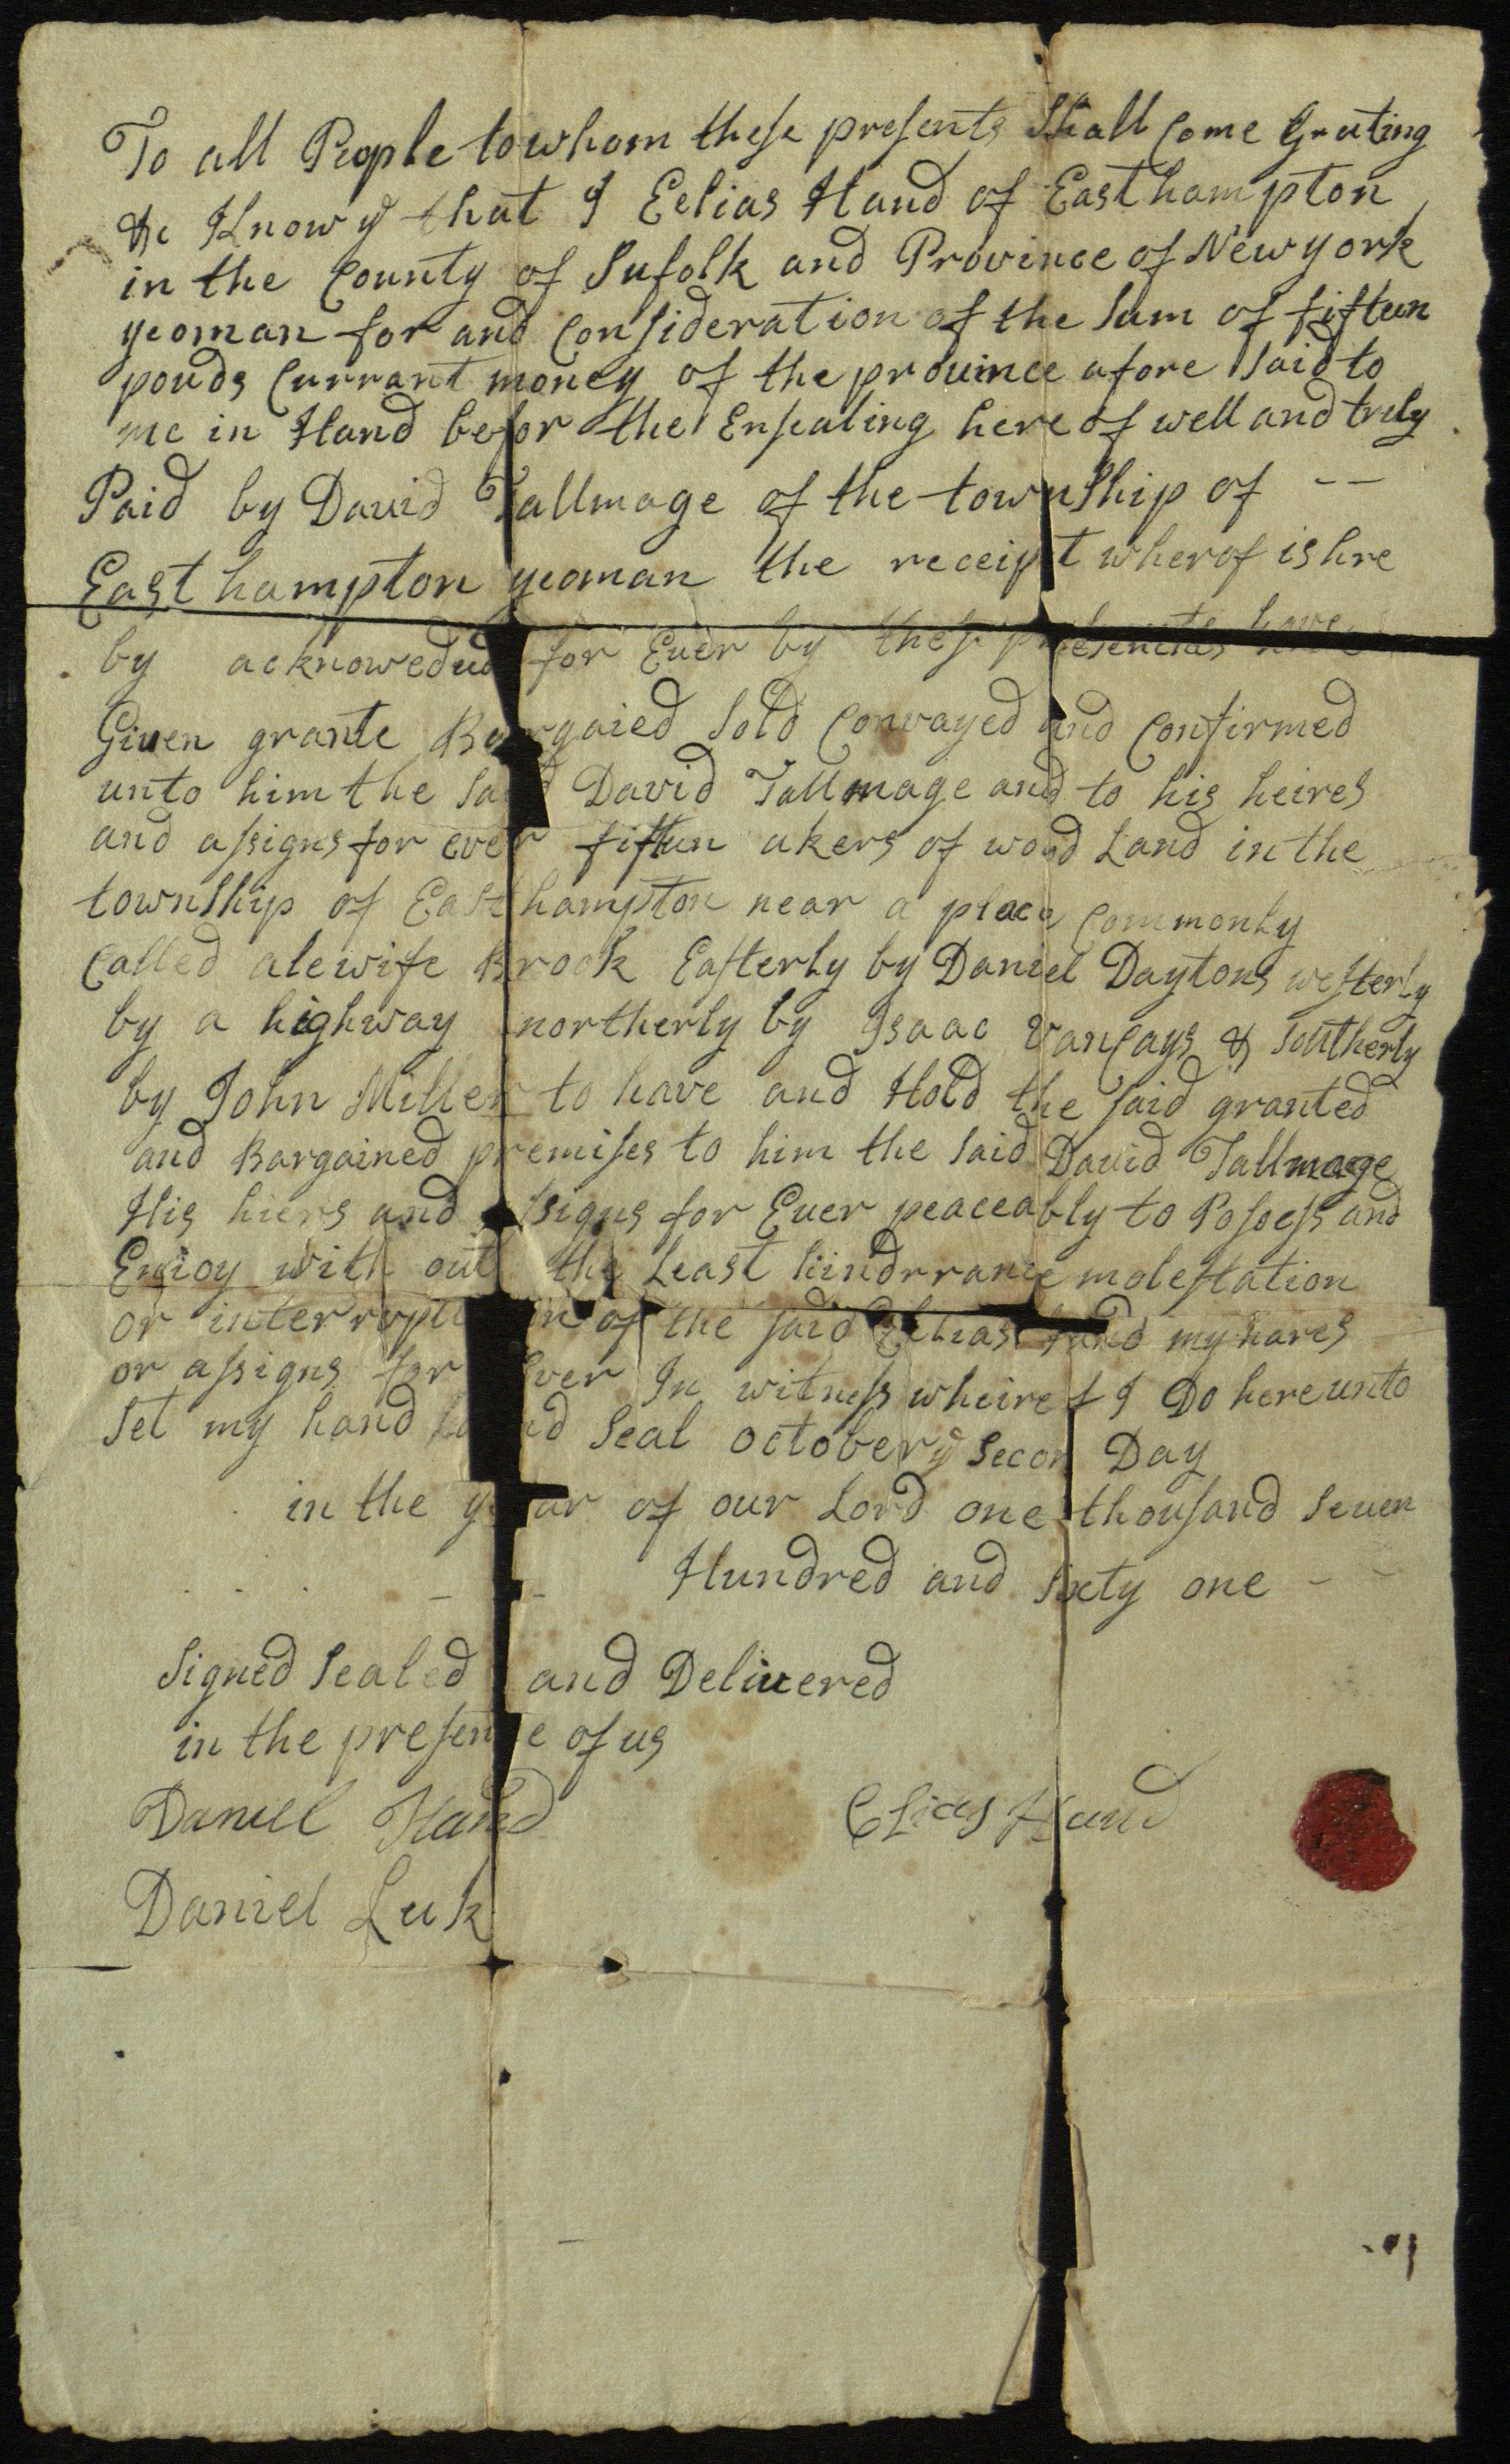 To all People to whom these presents Shall Come Greeting
&c Know yᵉ that I Eelias Hand of Easthampton
in the County of Sufolk and Province of Newyork
yeoman for and Consideration of the Sum of fifteen
pouds Currant money of the prouince afore Said to
me in Hand befor the Ensealing here of well and truly
Paid by David Tallmage of the township of --
East hampton yeoman the receipt wherof is hre
by acknoweded for Euer by thes presentes have
Given grante Bargaied Sold Convayed and Confirmed
unto him the Said David Tallmage and to his heires
and assigns for ever fifteen akers of wood Land in the
township of East hampton near a place Commonly
Called alewife Brook Easterly by Daniel Daytons westerly
by a highway northerly by Isaac Vanscays & Southerly
by John Miller to have and Hold the said granted
and Bargained premises to him the Said David Tallmage
His hiers and assigns for Euer peaceably to Posess and
Enioy with out the Least hindrrance molestation
or interruption of the said Eelias hand my hares
or assigns for Ever In witness wheirof I Do hereunto
Set my hand and Seal october yᵉ Secon Day
in the year of our Lord one thousand Seuen
Hundred and Sixty one --
Signed Sealed and Deliuered
in the presence of us
Daniel Hand
Elias Hand
Daniel Luk